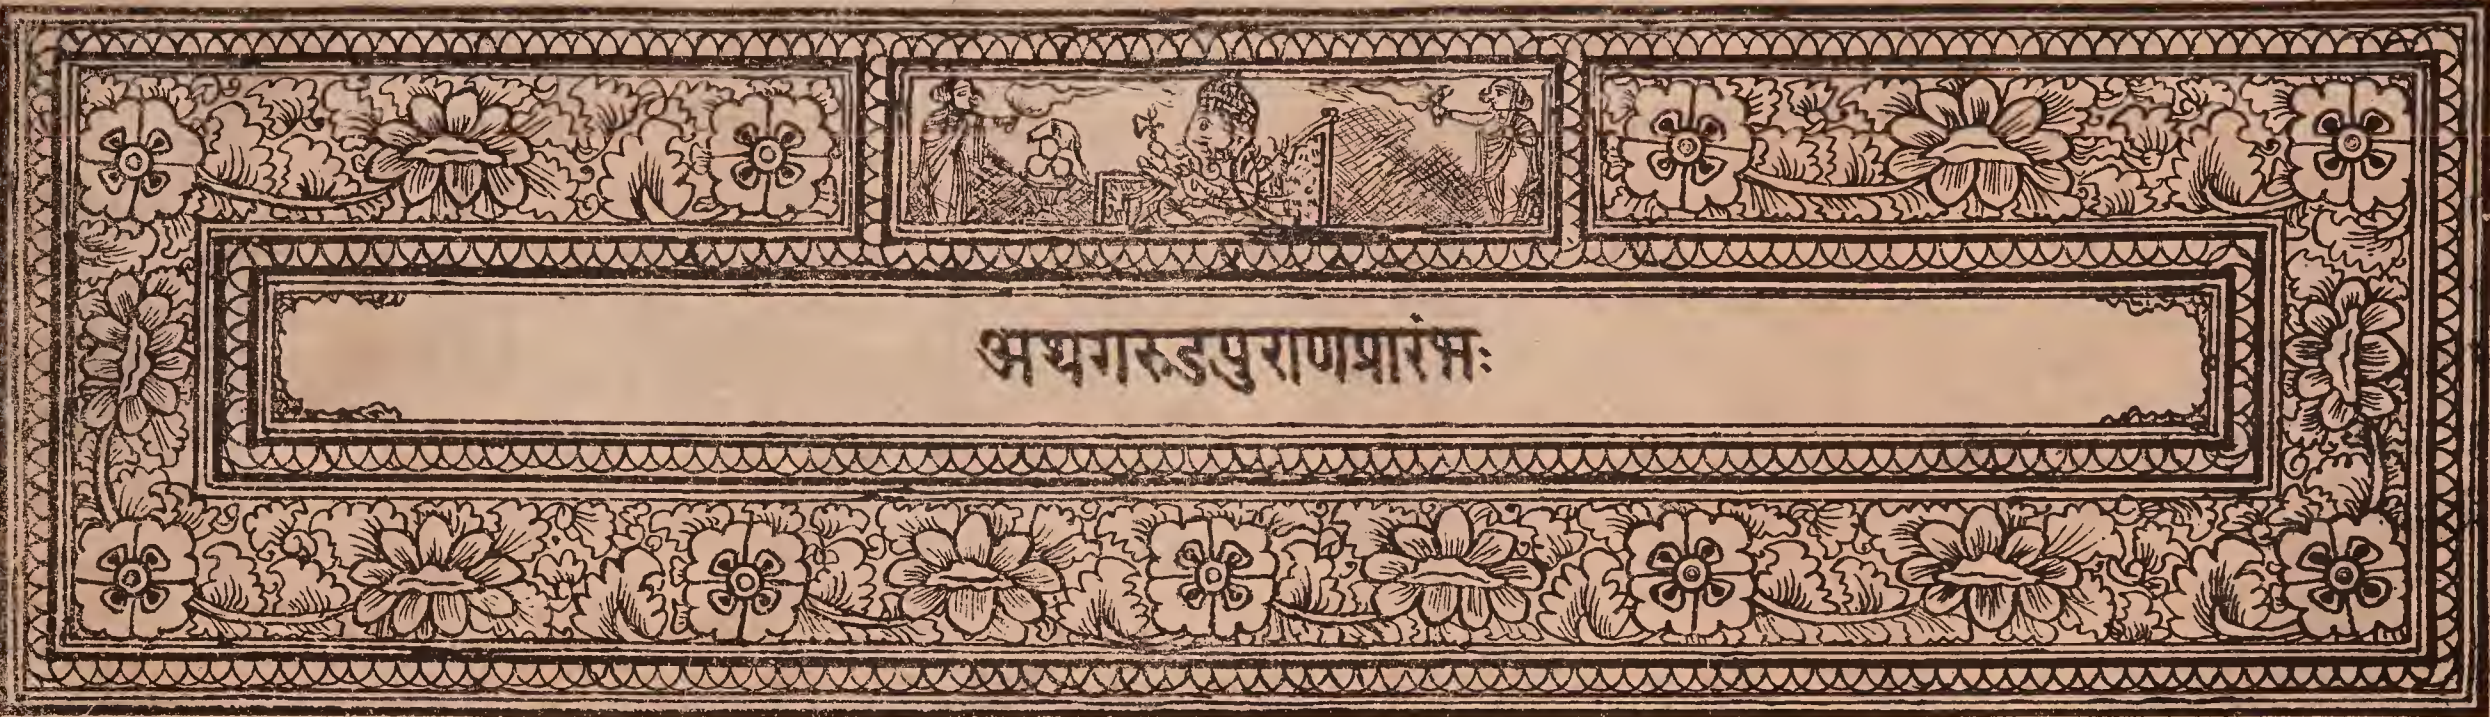 अथगरुडपुराणप्रारंभः